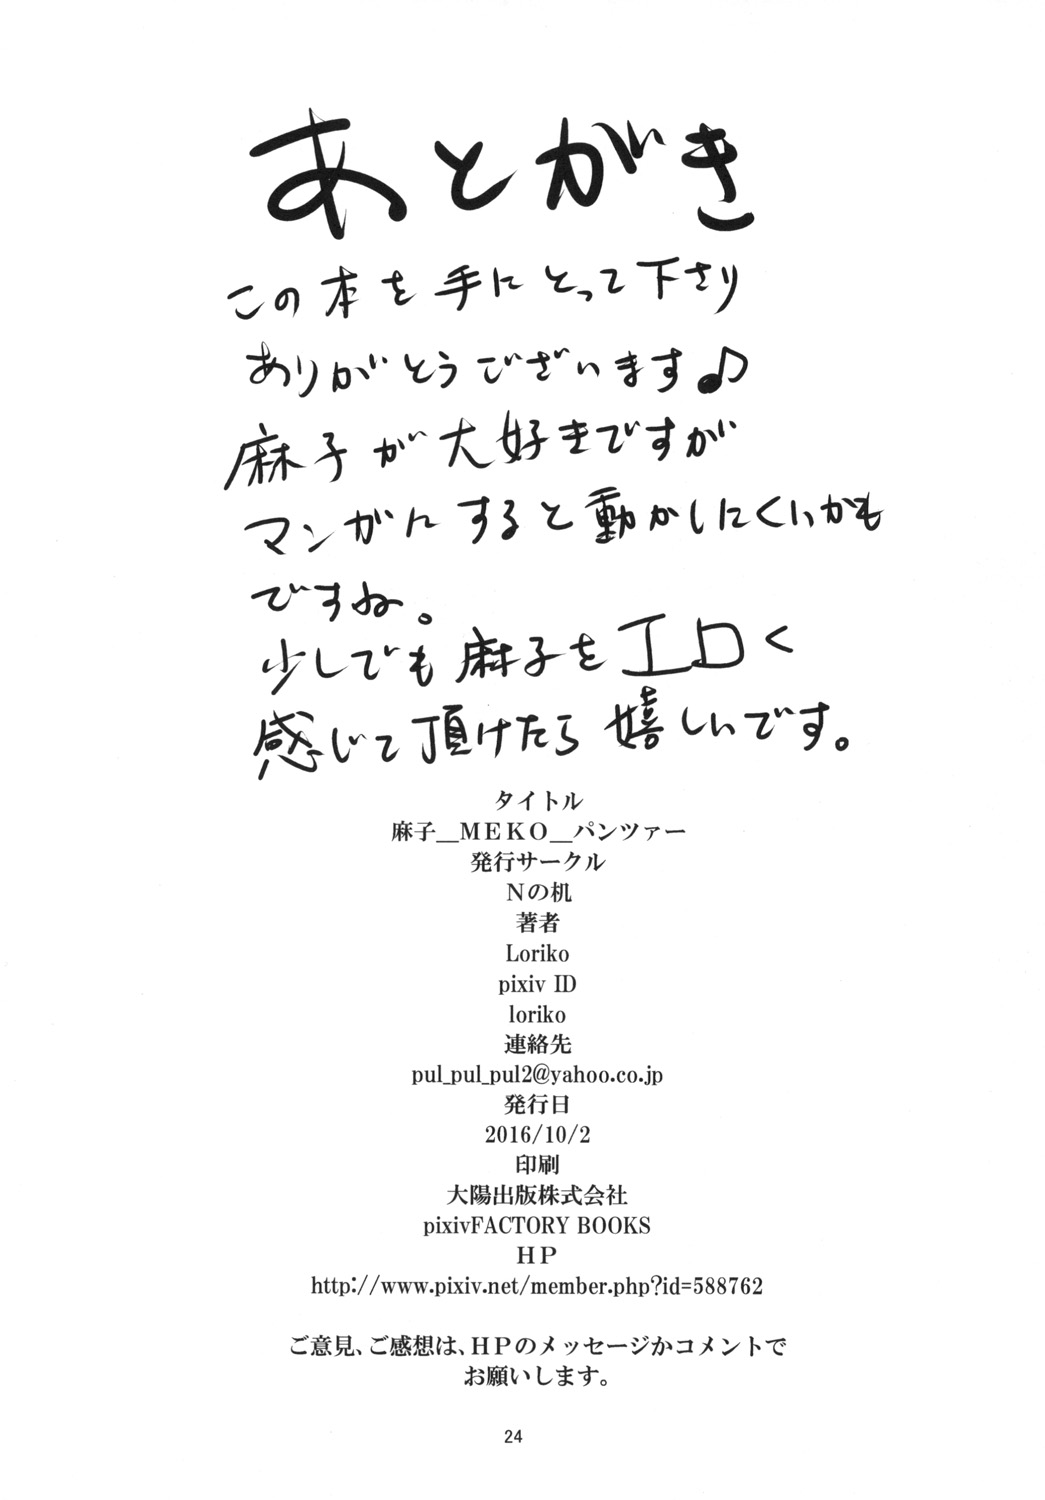 あとがき
この本を手にとって下さり
ありがとうございます♪
麻子が大好きですが
マンガにすると動かしにくいかも
ですね。
少しでも麻子をエロく
感じて頂けたら嬉しいです。
タイトル
麻子__ＭＥＫＯ__パンツァー
発行サークル
Ｎの机
著者
Loriko
pixiv ID
loriko
連絡先
pul_pul_pul2@yahoo.co.jp
発行日
2016/10/2
印刷
大陽出版株式会社
pixivFACTORY BOOKS
ＨＰ
http://www.pixiv.net/member.php?id=588762
ご意見、ご感想は、ＨＰのメッセージかコメントで
お願いします。
24